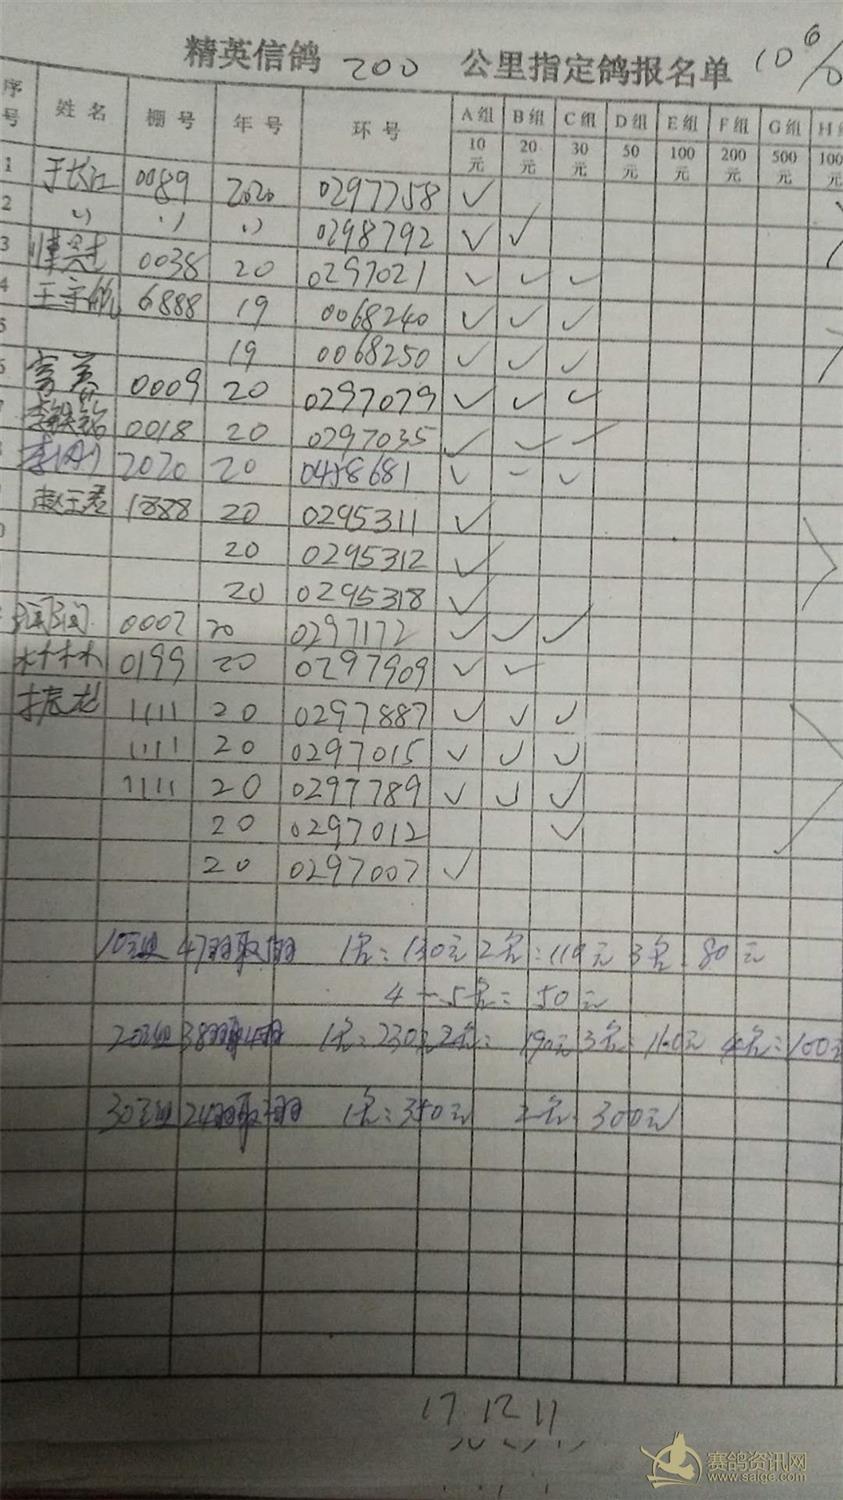 精英信鸽 200 公里指定鸽报名单 10
序号 姓名 棚号 年号 环号 A组 B组 C组 D组 E组 F组 G组 H
10元 20元 30元 50元 100元 200元 500元 100元
1 于长江 0089 2020 0297758 ✓
2 〃 〃 〃 0298792 ✓ ✓
3 0038 20 0297021 ✓ ✓ ✓
4 王宇航 6888 19 0068240 ✓ ✓ ✓
5 19 0068250 ✓ ✓ ✓
6 0009 20 0297079 ✓ ✓ ✓
7 李铁铭 0018 20 0297035 ✓ ✓ ✓
李刚 2020 20 0458681 ✓ ✓ ✓
赵玉君 1888 20 0295311 ✓
0 20 0295312 ✓
20 0295318 ✓
0002 20 0297172 ✓ ✓ ✓
林林 0199 20 0297909 ✓ ✓
1111 20 0297887 ✓ ✓ ✓
1111 20 0297015 ✓ ✓ ✓
1111 20 0297789 ✓ ✓ ✓
20 0297012 ✓
20 0297007 ✓
10元组 47羽取5羽 1名:130元 2名:110元 3名:80元
4-5名:50元
20元组 38羽取4羽 1名:230元 2名:190元 3名:160元 4名:100元
30元组 24羽取2羽 1名:350元 2名:300元
17 12 11
赛鸽资讯网
www.saige.com